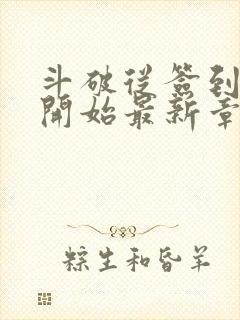 斗破從簽到
開始最新章
粽生和昏羊